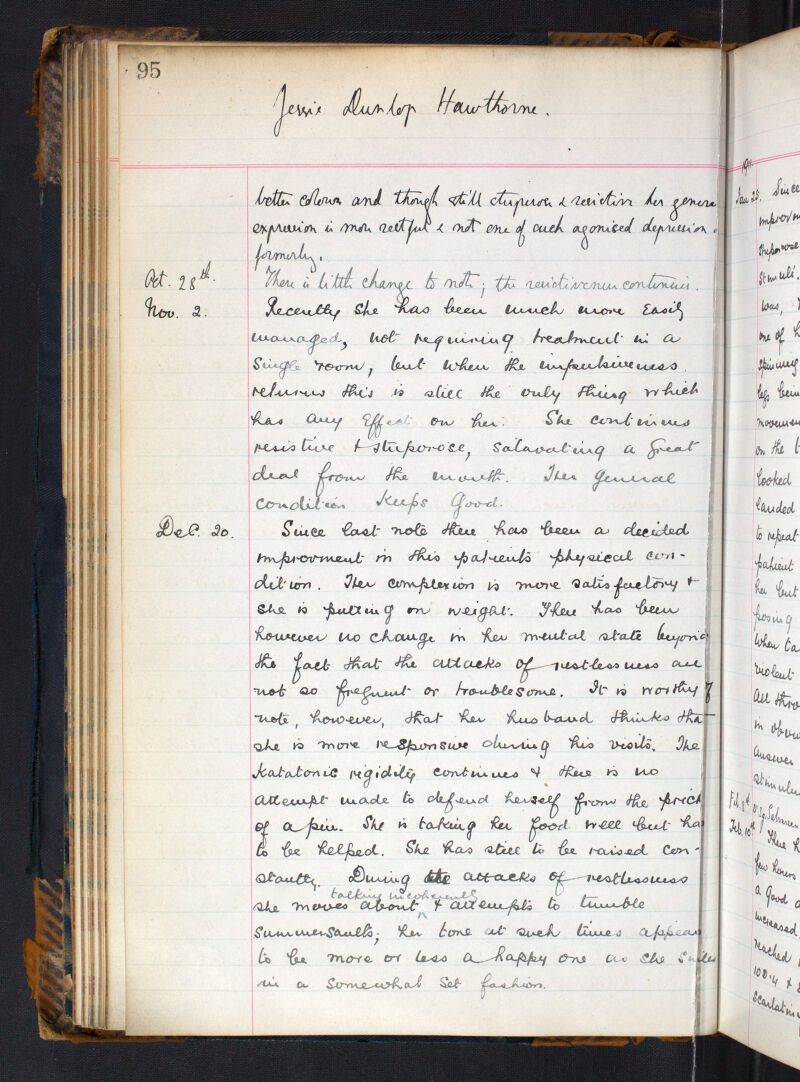 95
Jessie Dunlop Hawthorne.
better colour and though still stuporose & resistive her general
expression is more restful & not one of such agonised depression
formerly.
Oct. 28th. There is little change to note; the resistiveness continues.
Nov. 2. Recently she has been much more easily
managed, not requiring treatment in a
single room, but when the impulsiveness
returns this is still the only thing which
has any effect on her. She continues
resistive & stuporose, salavating a great
deal from the mouth. Her general
condition keeps good.
Dec. 20. Since last note there has been a decided
improvment in this patients physical con-
dition. Her complexion is more satisfactory &
she is putting on weight. There has been
however no change in her mental state beyond
the fact that the attacks of restlessness are
not so frequent or troublesome. It is worthy of
note, however, that her husband thinks that
she is more responsive during his visits. The
Katatonic rigidity continues & there is no
attempt made to defend herself from the prick
of a pin. She is taking her food well but has
to be helped. She has still to be raised con-
stantly. During the attacks of restlessness
talking incoherently
she moves about & attempts to tumble
summersaults; her tone at such times appears
to be more or less a happy one as she smiles
in a somewhat set fashion.
191
Jan 25. Since
improvm
stuporose
stimuli.
was,
one of h
spinning
legs bein
movemen
on the
looked
landed
to repeat
patient
her but
posing
When ta
violent
All thro
in obv
answer
stimulu
Feb. 8th
Feb. 10th There h
few hours
a good a
increased
reached
102.4 &
Scarlatin